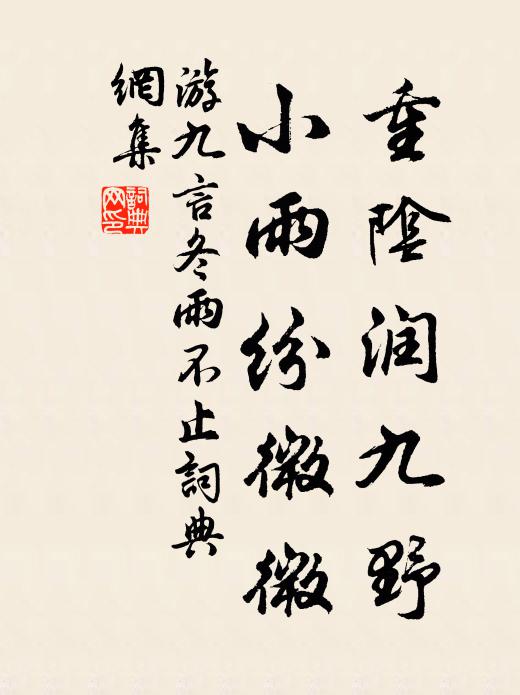 重陰润九野
小雨纷微微
游九言冬雨不止詞典
網集
詞典
网印